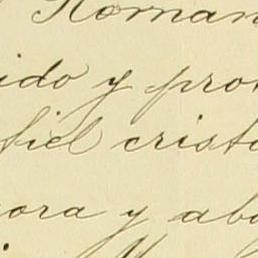 Roman
ido y pro
fiel crist
ora y abo